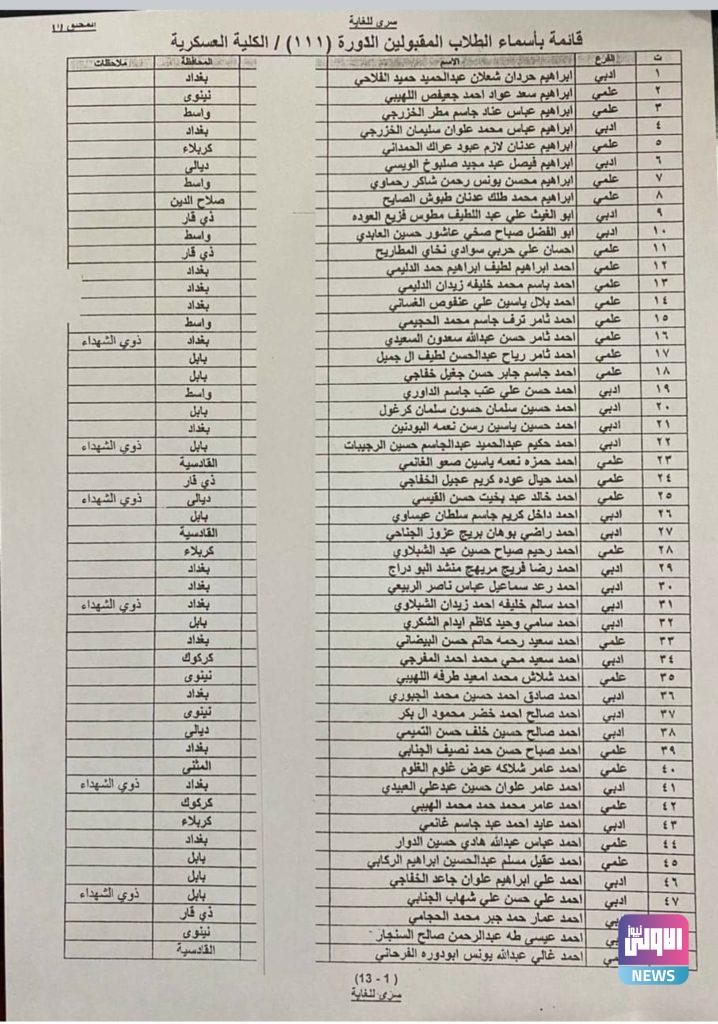 سري للغاية
الملحق (أ)
قائمة بأسماء الطلاب المقبولين الدورة (١١١) / الكلية العسكرية
ت الفرع الاسم المحافظة ملاحظات
١ ادبي ابراهيم حردان شعلان عبدالحميد حميد الفلاحي بغداد
٢ علمي ابراهيم سعد عواد احمد جعيفص اللهيبي نينوى
٣ علمي ابراهيم عباس عناد جاسم مطر الخزرجي واسط
٤ ادبي ابراهيم عباس محمد علوان سليمان الخزرجي بغداد
٥ علمي ابراهيم عدنان لازم عبود عراك الحمداني كربلاء
٦ ادبي ابراهيم فيصل عبد مجيد صلبوخ الويسي ديالى
٧ علمي ابراهيم محسن يونس رحمن شاكر رحماوي واسط
٨ علمي ابراهيم محمد طلك عدنان طبوش الصايح صلاح الدين
٩ ادبي ابو الغيث علي عبد اللطيف مطوس فزيع العوده ذي قار
١٠ ادبي ابو الفضل صباح صخي عاشور حسين العابدي واسط
١١ علمي احسان علي حربي سوادي نخاي المطاريح ذي قار
١٢ علمي احمد ابراهيم لطيف ابراهيم حمد الدليمي بغداد
١٣ علمي احمد باسم محمد خليفه زيدان الدليمي بغداد
١٤ علمي احمد بلال ياسين علي عنفوص الغساني بغداد
١٥ علمي احمد ثامر ترف جاسم محمد الحجيمي واسط
١٦ علمي احمد ثامر حسن عبدالله سعدون السعيدي بغداد ذوي الشهداء
١٧ علمي احمد ثامر رياح عبدالحسن لطيف ال جميل بابل
١٨ علمي احمد جاسم جابر حسن جغيل خفاجي بابل
١٩ ادبي احمد حسن علي عتب جاسم الداوري واسط
٢٠ ادبي احمد حسين سلمان حسون سلمان كرغول بابل
٢١ ادبي احمد حسين ياسين رسن نعمه البودنين بغداد
٢٢ ادبي احمد حكيم عبدالحميد عبدالجاسم حسين الرجيبات بابل ذوي الشهداء
٢٣ علمي احمد حمزه نعمه ياسين صعو الغانمي القادسية
٢٤ علمي احمد حيال عوده كريم عجيل الخفاجي ذي قار
٢٥ علمي احمد خالد عبد بخيت حسن القيسي ديالى ذوي الشهداء
٢٦ ادبي احمد داخل كريم جاسم سلطان عيساوي بابل
٢٧ ادبي احمد راضي بوهان بريج عزوز الجناحي القادسية
٢٨ علمي احمد رحيم صباح حسين عبد الشبلاوي كربلاء
٢٩ ادبي احمد رضا فريج مريهج منشد البو دراج بغداد
٣٠ ادبي احمد رعد سماعيل عباس ناصر الربيعي بغداد
٣١ ادبي احمد سالم خليفه احمد زيدان الشبلاوي بغداد ذوي الشهداء
٣٢ ادبي احمد سامي وحيد كاظم ايدام الشكري بابل
٣٣ علمي احمد سعيد رحمه حاتم حسن البيضاني بغداد
٣٤ ادبي احمد سعيد محي محمد احمد المفرجي كركوك
٣٥ علمي احمد شلاش محمد امعيد طرفه اللهيبي نينوى
٣٦ ادبي احمد صادق احمد حسين محمد الجبوري بغداد
٣٧ ادبي احمد صالح احمد خضر محمود ال بكر نينوى
٣٨ ادبي احمد صالح حسين خلف حسن التميمي ديالى
٣٩ علمي احمد صباح حسن حمد نصيف الجنابي بغداد
٤٠ علمي احمد عامر شلاكه عوض غلوم الغلوم المثنى
٤١ ادبي احمد عامر علوان حسين عبدعلي العبيدي بغداد ذوي الشهداء
٤٢ علمي احمد عامر محمد حمد محمد الهيبي كركوك
٤٣ ادبي احمد عايد احمد عبد جاسم غانمي كربلاء
٤٤ علمي احمد عباس عبدالله هادي حسين الدوار بغداد
٤٥ علمي احمد عقيل مسلم عبدالحسين ابراهيم الركابي بابل
٤٦ ادبي احمد علي ابراهيم علوان جاعد الخفاجي بابل
٤٧ ادبي احمد علي حسن علي شهاب الجنابي بابل ذوي الشهداء
احمد عمار حمد جبر محمد الحجامي ذي قار
احمد عيسى طه عبدالرحمن صالح السنجار نينوى
احمد غالي عبدالله يونس ابودوره الفرحاني القادسية
(1 - 13)
سري للغاية
الاولى نيوز
NEWS